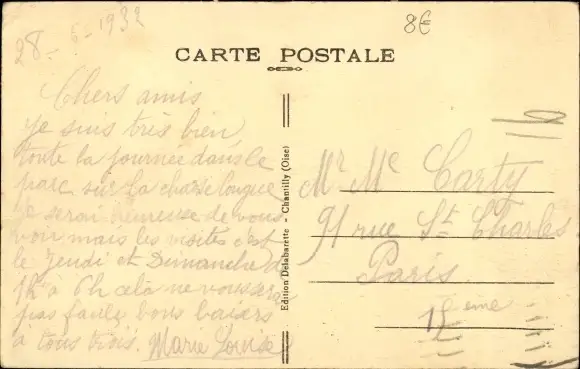 28-6-1932
8€
CARTE POSTALE
Chers amis
je suis très bien
toute la journée dans le
parc sur la chaise longue
je serai heureuse de vous
voir mais les visites c'est
le Jeudi et Dimanche de
1h à 6h cela ne vous sera
pas facile bons baisers
à tous trois. Marie Louise
Edition Delabarette - Chantilly (Oise)
Mr Me Carty
91 rue St Charles
Paris
15 ème